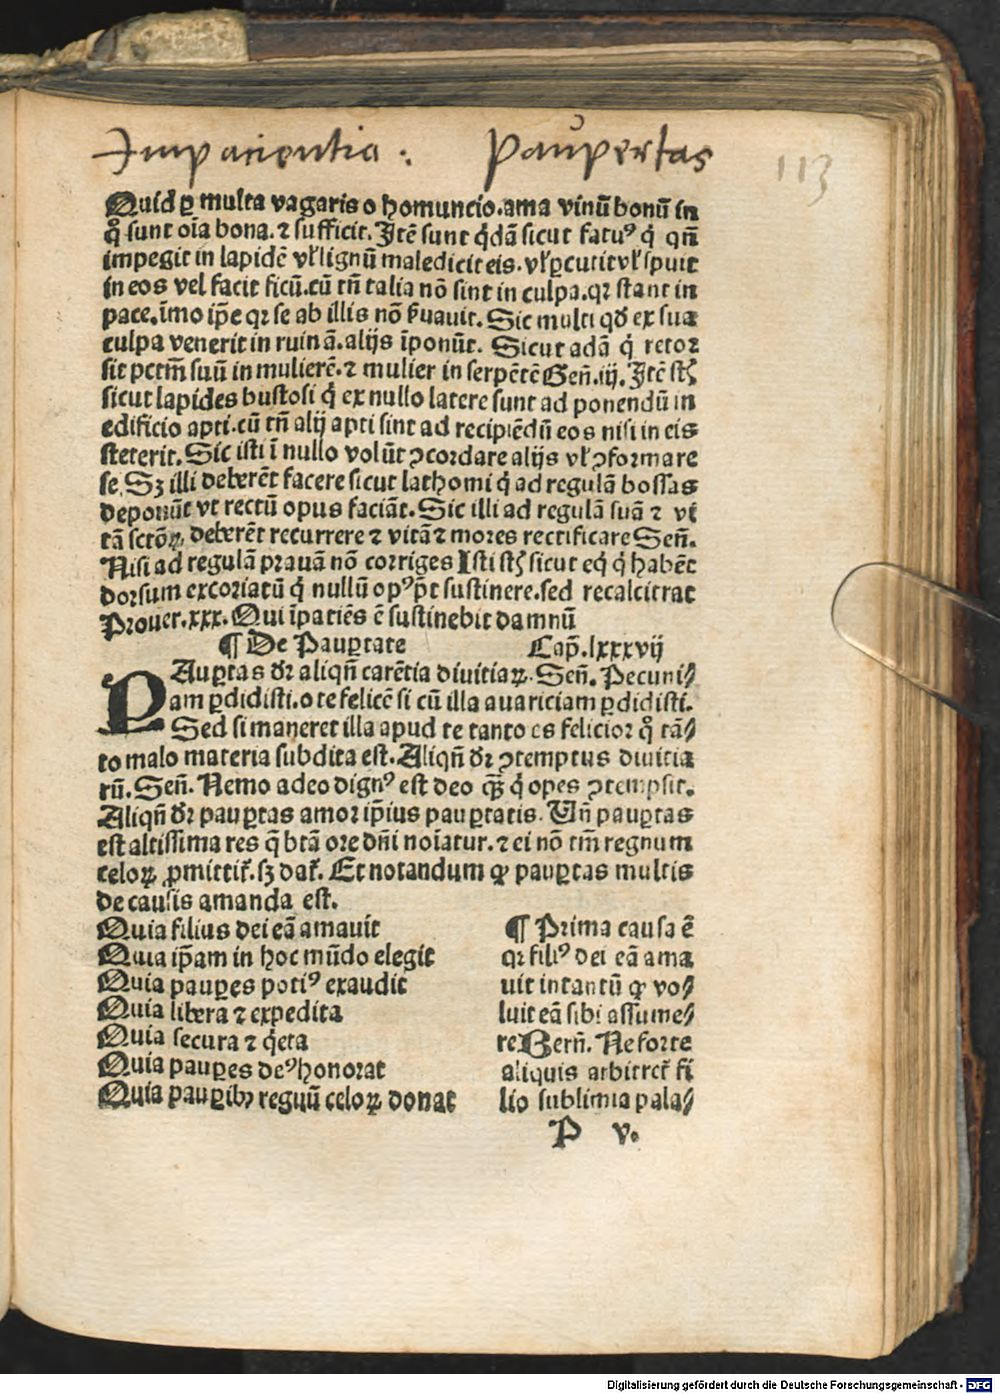 Impacientia : Paupertas
113
Quid ꝑ multa vagaris o homuncio.ama vinū bonū in
q̊ sunt oīa bona.⁊ sufficit. Itē sunt q̇dā sicut fatuꝰ q̇ qn̄
impegit in lapidē vl̓ lignū maledicit eis. vl̓ ꝑcutit vl̓ spuit
in eos vel facit ficū.cū tn̄ talia nō sint in culpa.qꝛ stant in
pace.īmo ip̄e qꝛ se ab illis nō ẜuauit. Sic multi qd̓ ex sua
culpa venerit in ruinā.alijs īponūt. Sicut adā q̇ retoꝛ
sit pctm̄ suū in mulierē.⁊ mulier in serpētē Gen̄.iij. Itē st̄
sicut lapides bustosi q̇ ex nullo latere sunt ad ponendū in
edificio apti.cū tn̄ alij apti sint ad recipiēdū eos nisi in eis
steterit. Sic isti ī nullo volūt ꝯcordare alijs vl̓ ꝯformare
se. Sꝫ illi deberēt facere sicut lathomi q̇ ad regulā bossas
deponūt vt rectū opus faciāt. Sic illi ad regulā suā ⁊ vi
tā sctōꝝ, deberēt recurrere ⁊ vitā ⁊ moꝛes rectificare Sen̄.
Nisi ad regulā pꝛauā nō coꝛriges Isti st̄ sicut eq̇ q̇ habēt
doꝛsum excoꝛiatū q̇ nullū opꝰ p̄t sustinere.sed recalcitrat
Pꝛouer.xxx. Qui īpatiēs ē sustinebit damnū
¶ De Pauꝑtate Cap̄. lxxxvij
PAuꝑtas dꝛ̄ aliqn̄ carētia divitiaꝝ. Sen̄. Pecuni⸗
am ꝑdidisti.o te felicē si cū illa auariciam ꝑdidisti.
Sed si maneret illa apud te tanto es felicioꝛ q̊ tā⸗
to malo materia subdita est. Aliqn̄ dꝛ̄ ꝯtemptus divitia
rū. Sen̄. Nemo adeo dignꝰ est deo qꝫ̄ q̇ opes ꝯtempsit.
Aliqn̄ dꝛ̄ pauꝑtas amoꝛ ip̄ius pauꝑtatis. Un̄ pauꝑtas
est altissima res q̄ btā oꝛe dn̄i noīatur.⁊ ei nō tm̄ regnum
celoꝝ ꝓmittit̄.sꝫ dat̄. Et notandum ꝙ pauꝑtas multis
de causis amanda est.
Quia filius dei eā amauit
Quia ip̄am in hoc mūdo elegit
Quia pauꝑes potiꝰ exaudit
Quia libera ⁊ expedita
Quia secura ⁊ q̇eta
Quia pauꝑes deꝰ honoꝛat
Quia pauꝑibꝫ regnū celoꝝ donat
¶ Pꝛima causa ē
qꝛ filiꝰ dei eā ama
uit intantū ꝙ vo⸗
luit eā sibi assume⸗
re Bern̄. Ne foꝛte
aliquis arbitret̄ fi
lio sublimia pala⸗
P v.
Digitalisierung gefördert durch die Deutsche Forschungsgemeinschaft - DFG